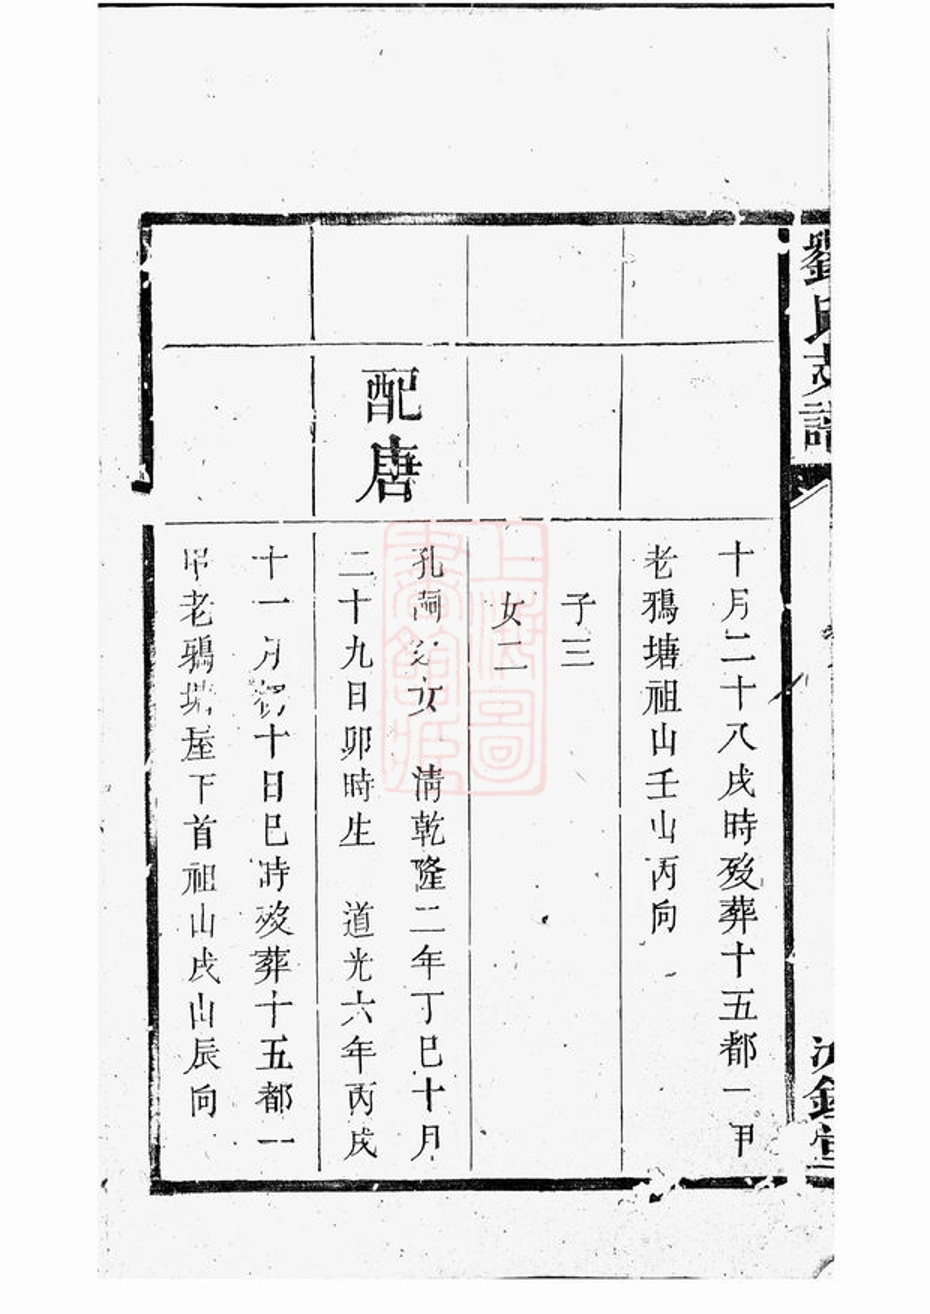 劉氏支譜
十月二十八戌時歿葬十五都一甲
老鴉塘祖山壬山丙向
子三
女二
配唐
孔 女　清乾隆二年丁巳十月
二十九日卯時生　道光六年丙戌
十一月初十日巳時歿葬十五都一
甲老鴉塘屋下首祖山戌山辰向
上海圖書館藏